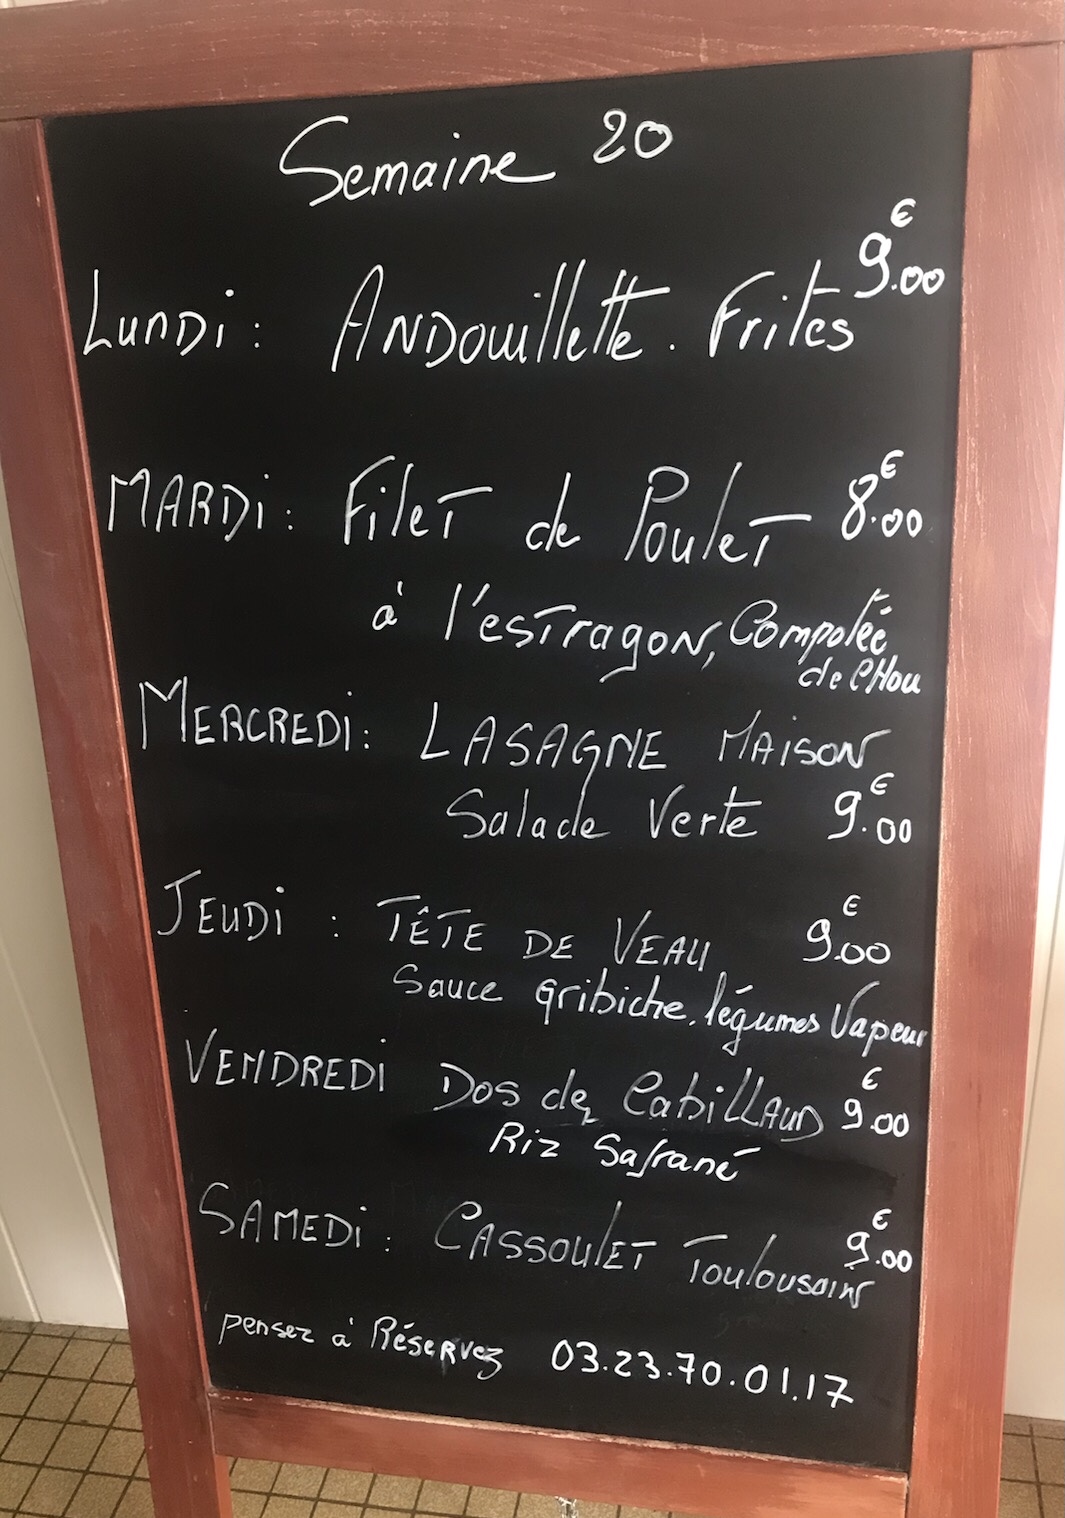 Semaine 20
Lundi : Andouillette . Frites 9.00€
Mardi : Filet de Poulet 8.00€
à l'estragon, Compotée
de chou
Mercredi : Lasagne Maison
Salade Verte 9.00€
Jeudi : Tête de Veau 9.00€
Sauce gribiche, légumes Vapeur
Vendredi Dos de Cabillaud 9.00€
Riz Safrané
Samedi : Cassoulet Toulousain 9.00€
pensez à Réservez 03.23.70.01.17